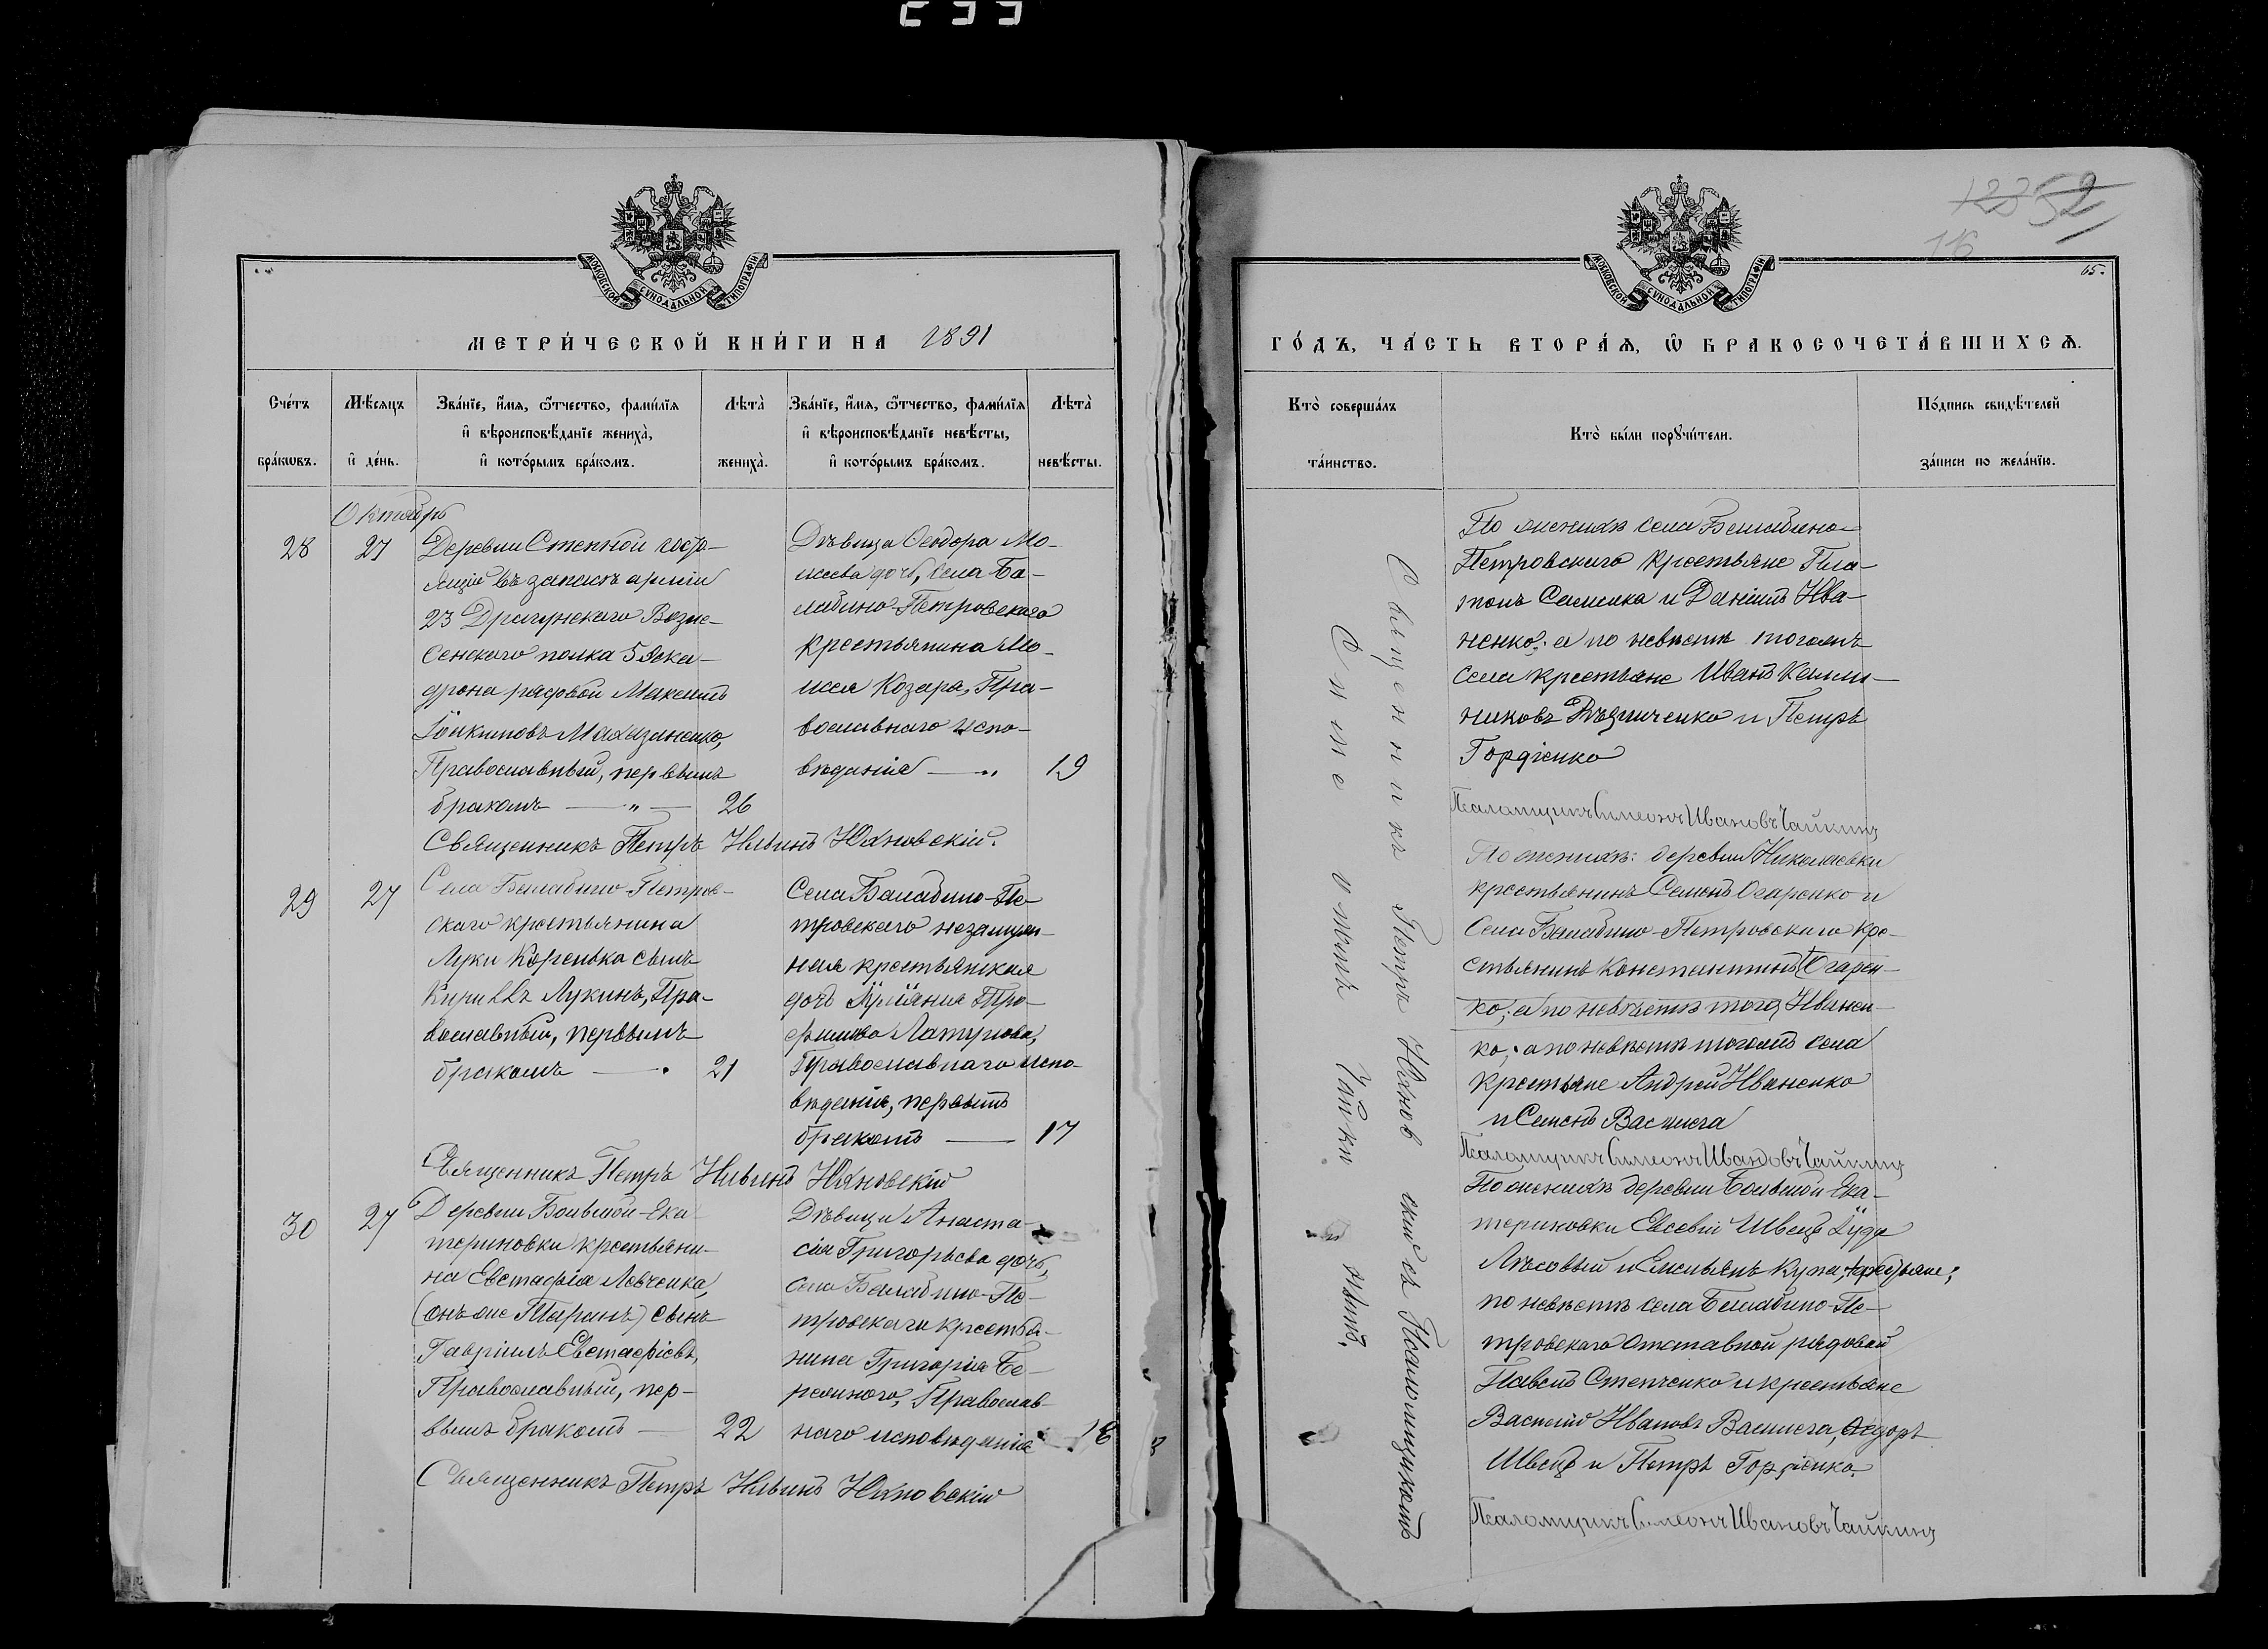 МОСКОВСКОЙ СѴНОДАЛЬНОЙ ТИПОГРАФІИ
МЕТРИ́ЧЕСКОЙ КНИ́ГИ НА 1891
Сче́тъ бра́кѡвъ.
Мѣ́сяцъ и҆ де́нь.
Зва́нїе, и҆́мѧ, ѻ҆́тчество, фами́лїѧ
и҆ вѣроисповѣ́данїе жениха̀,
и҆ кото́рымъ бра́комъ.
Лѣта̀ жениха̀.
Зва́нїе, и҆́мѧ, ѻ҆́тчество, фами́лїѧ
и҆ вѣроисповѣ́данїе невѣ́сты,
и҆ кото́рымъ бра́комъ.
Лѣта̀ невѣ́сты.
Октябрь
28
27
Деревни Степной состо-
ящіе въ запасѣ арміи
23 Драгунскаго Возне-
сенскаго полка 5 Эска-
дрона рядовой Максимъ
Іоакимовъ
Православный, первымъ
бракомъ — „ — 26
Дѣвица Ѳеодора Мо-
исеева дочь, села Ба-
лабино-Петровскаго
крестьянина Мо-
исея Козара, Пра-
вославнаго испо-
вѣданія — „ 19
Священникъ Петръ Ильинъ Юхновскій.
29
27
Села Балабино-Петров-
скаго крестьянина
Луки Коренька сынъ
Кириллъ Лукинъ, Пра-
вославный, первымъ
бракомъ — . 21
Села Балабино-Пе-
тровскаго незаконн-
ная крестьянская
дочь
Православнаго испо-
вѣданія, первымъ
бракомъ — 17
Священникъ Петръ Ильинъ Юхновскій
30
27
Деревни Большой-Ека-
териновки крестьяни-
на Евстафія Левченка,
(онъ же Таранъ) сынъ
Гавріилъ Евстафіевъ,
Православный, пер-
вымъ бракомъ — 22
Дѣвица Анаста-
сія Григорьева дочь,
села Балабино-Пе-
тровскаго крестья-
нина Григорія Бе-
режного, Православ-
наго исповѣданія 18
Священникъ Петръ Ильинъ Юхновскій
12352
16
МОСКОВСКОЙ СѴНОДАЛЬНОЙ ТИПОГРАФІИ
65.
ГО́ДЪ, ЧА́СТЬ ВТОРА́Ѧ, Ѡ҆ БРАКОСОЧЕТА́ВШИХСѦ.
Кто̀ соверша́лъ та́инство.
Кто̀ бы́ли порꙋчи́тели.
По́дпись свидѣ́телей за́писи по жела́нїю.
Священникъ Петръ Юхновскій съ Псаломщикомъ
Симеономъ Чайкинымъ.
По женихѣ села Балабино-
Петровскаго крестьяне Пла-
тонъ Саменка и Даніилъ Ива-
ненко; а по невѣстѣ тогожъ
села крестьяне Иванъ
и Петръ
Гордіенко
Псаломщикъ Симеонъ Ивановъ Чайкинъ
По женихѣ: деревни Николаевки
крестьянинъ Семенъ Огаренко и
Села Балабино-Петровскаго кре-
стьянинъ Константинъ Огарен-
ко; а по невѣстѣ того, Иванен-
ко; а по невѣстѣ тогожъ села
крестьяне Андрей Иваненко
и Семенъ Василега
Псаломщикъ Симеонъ Ивановъ Чайкинъ
По женихѣ деревни Большой Ека-
териновки Евсевій Швецъ Іуда
Лѣсовый и Емельянъ Купа, крестьяне;
по невѣстѣ села Балабино-Пе-
тровскаго отставной рядовой
Павелъ Степченко и крестьяне
Василій Ивановъ Василега, Ѳедоръ
Швецъ и Петръ Гордіенко.
Псаломщикъ Симеонъ Ивановъ Чайкинъ